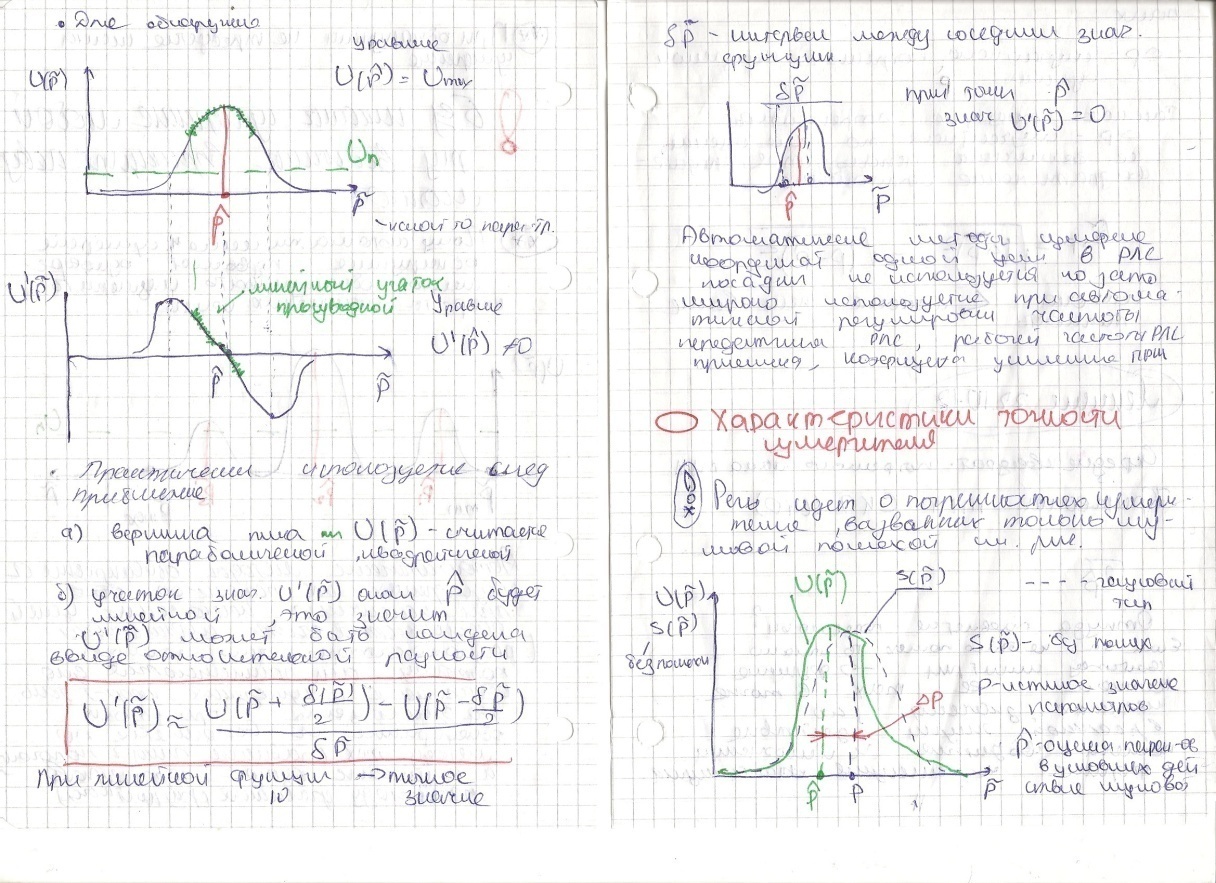 • Для обнаружения
Уравнение
U(p̃)
U(p̂) = Umax
Uп
p̂
p̃
~ какой то парам-тр.
U'(p̃)
линейный участок
производной
Уравнение
U'(p̂) ≠0
p̂
p̃
• Практически используется след
приближение
а) вершина пика U(p̃) - считается
параболической, квадратической
б) участок знач. U'(p̃) около p̂ будет
линейной, это значит
U'(p̃) может бать найдена
ввиде относительной разности
U'(p̃) ≈ U(p̃ + δ(p̃)/2) - U(p̃ - δp̃/2)
δp̃
При линейной функции → точное
10 значение
δp̃ - интервал между соседним знач.
функции.
δp̃
при точки p̂
знач U'(p̃) = 0
p̂
p̃
Автоматические методы измерение
координат одной цели в РЛС
посадки не используется но зато
широко используется при автома-
тической регулировки частоты
передатчика РЛС, рабочей частоты РЛС
приемника, коэфициента усиления прм
Характеристики точности
измерителя
Речь идет о погрешностях измери-
теля, вызванных только шу-
мовой помехой
U(p̃)
S(p̃)
без помехи
U(p̃)
S(p̃)
---- гаусовый
тип
S(p̃) - без помех
P-истиное значение
параметров
ΔP
p̂ - оценка парам-ов
в условиях дей
ствие шумовой
p̂
P
p̃